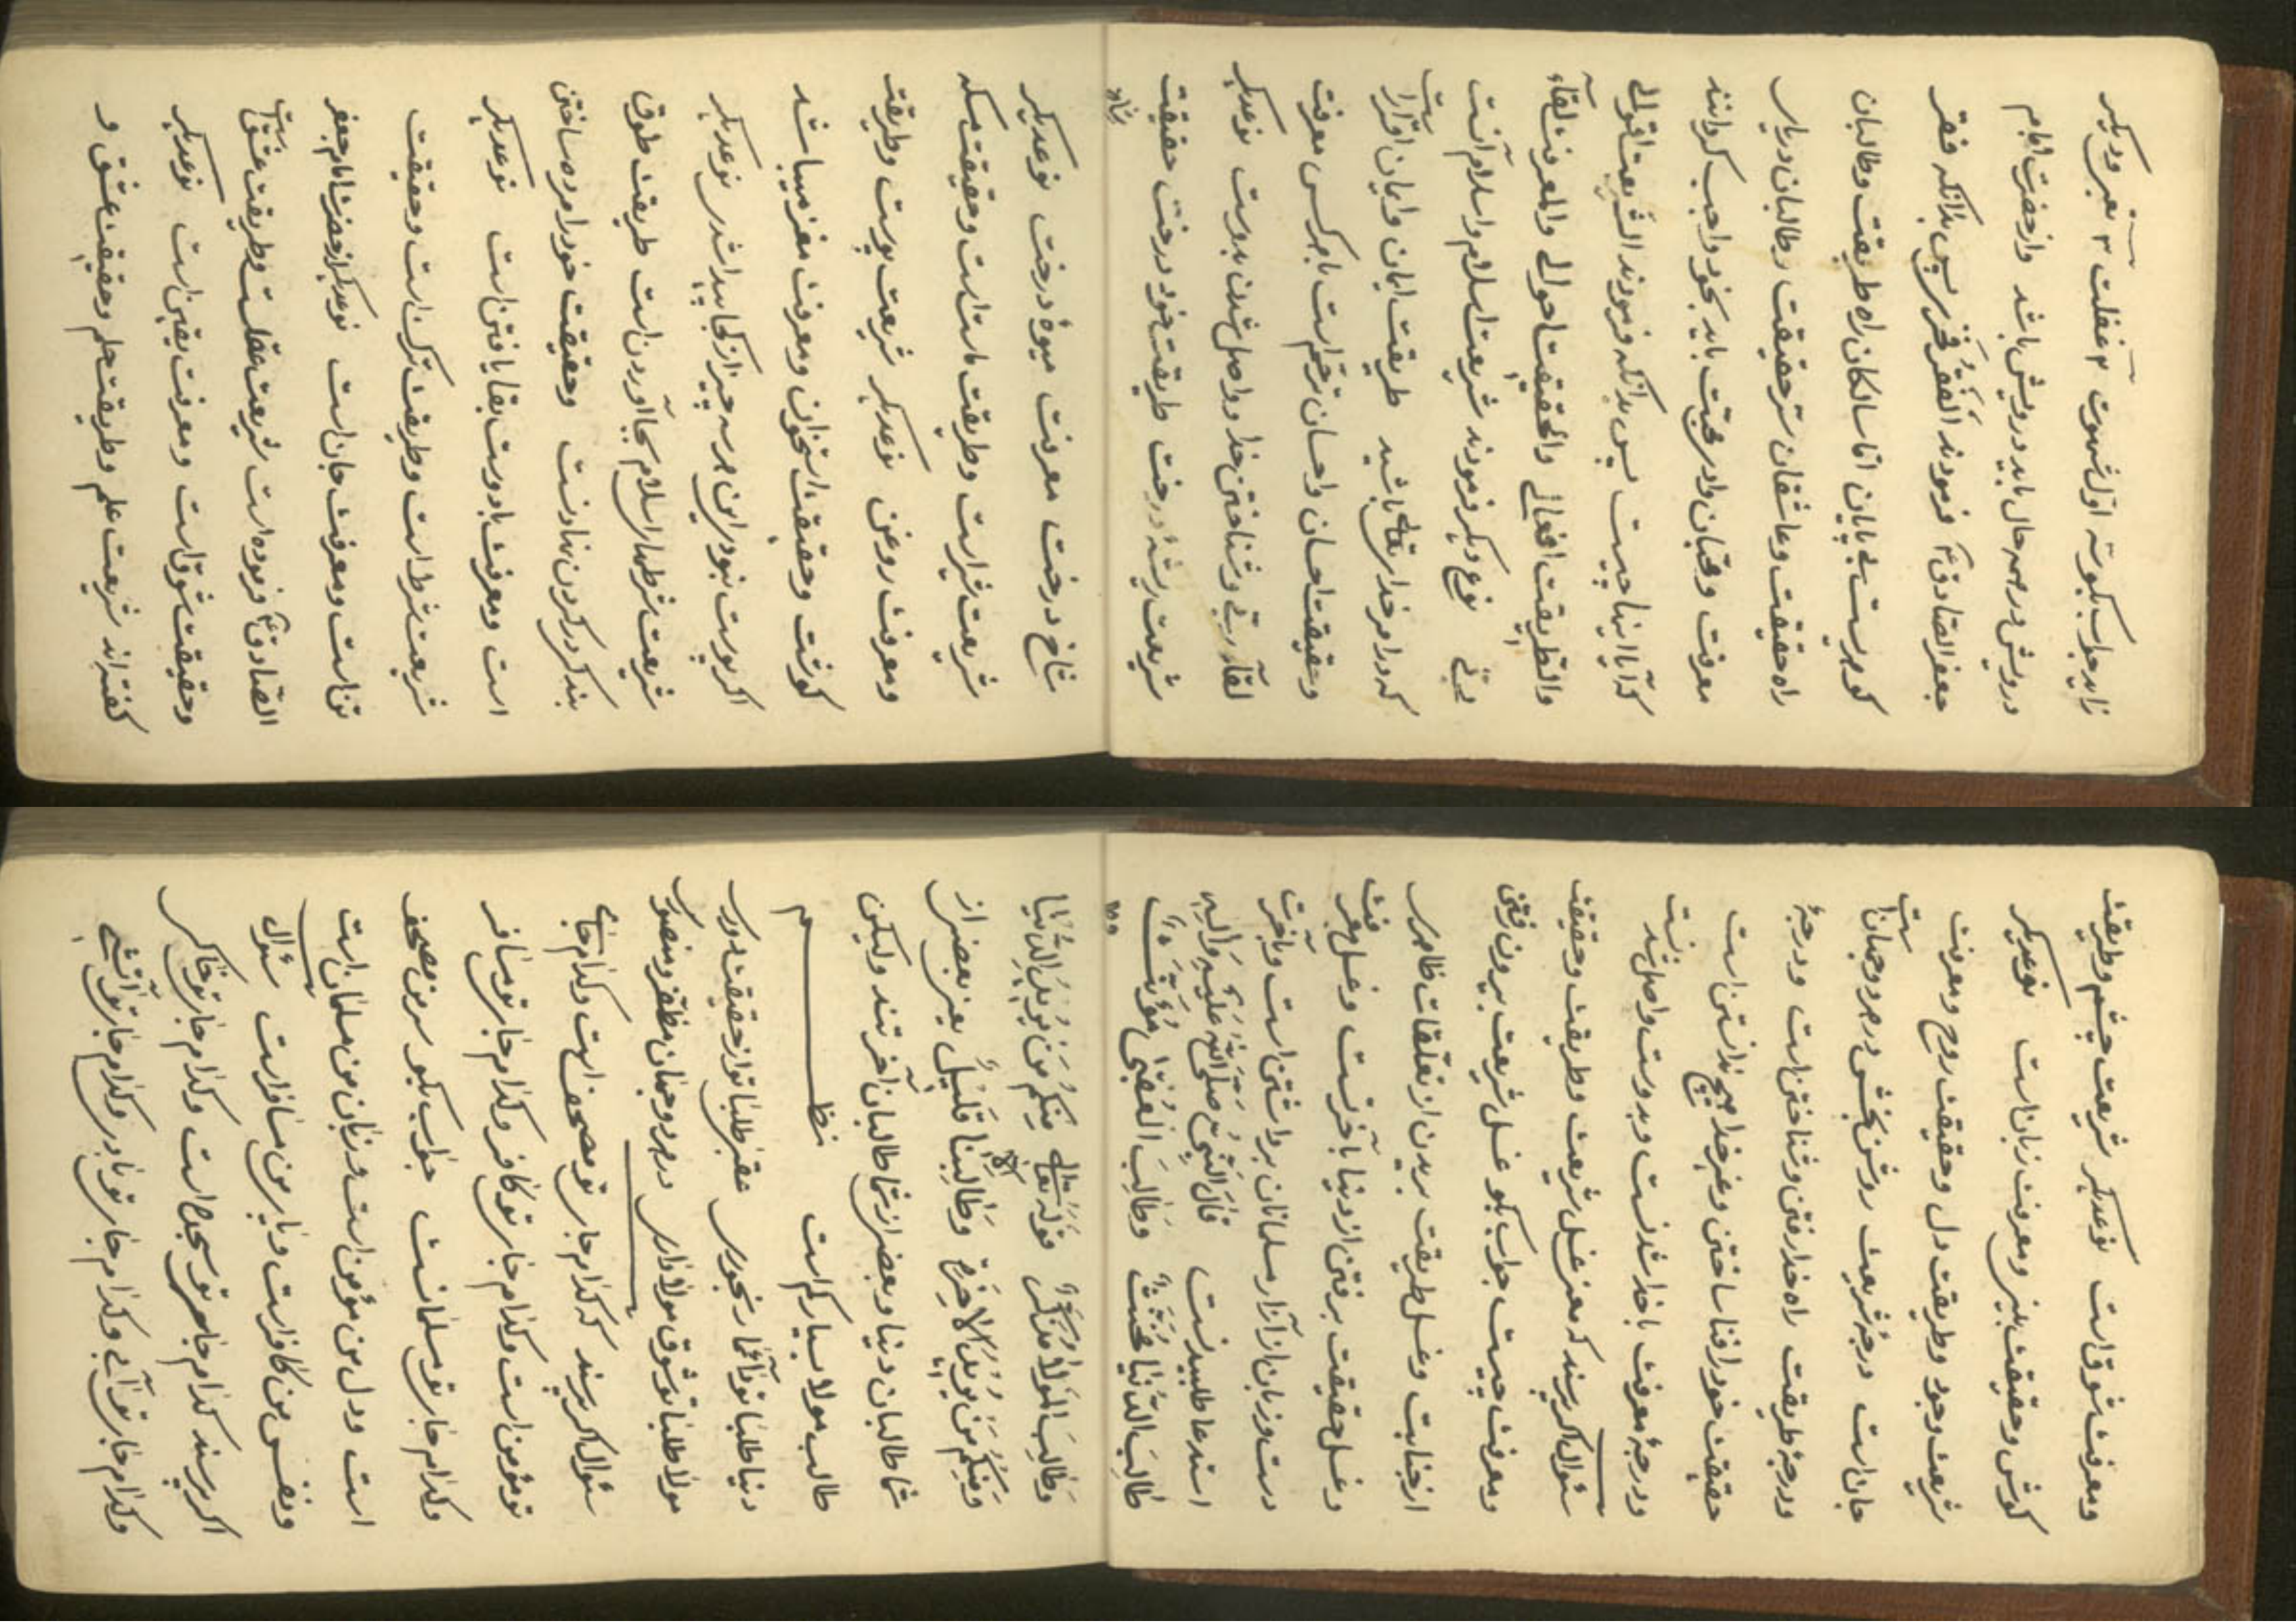 زاید جواب بکو سه اول شهوت ۲ غفلت ۳ تعبیر و دیکر
درویش در همه حال باید درویش باشد و از حضرت امام
جعفر الصادق ع فرمودند الْفَقْرُ فَخْری پس بدانکه فقر
کوهریست بی پایان اما سالکان راه طریقت و طالبان
راه حقیقت و عاشقان سرّ حقیقت و طالبان دریای
معرفت و محبّان وادی محبّت باید بخود واجب کردانند
که آیا اینها چیست پس بدانکه فرمودند الشّریعت اقوالی
والطّریقت افعالی والحقیقت احوالی والمعرفت لقآء
ربّی نوع دیکر فرمودند شریعت اسلام و اسلام آنست
که در امر خدایتعالی باشید طریقت ایمان و ایمان اقرارست
و حقیقت احسان و احسان ترحّم است با هر کسی معرفت
لقآء ربّی و شناختن خدا و واصل شدن بدوست نوعدیکر
شریعت ریشۀ درخت طریقت خود درخت حقیقت
شاخ
شاخ درخت معرفت میوۀ درخت نوعدیکر
شریعت شیر است و طریقت ماست است و حقیقت مسکه
و معرفت روغن نوعدیکر شریعت پوست و طریقت
کوشت و حقیقت استخوان و معرفت مغز میباشد
اکر پوست نبودی این هر سه چیز از کجا پیدا شدی نوعدیکر
شریعت شرطهای اسلام بجا آوردن است طریقت طوق
بندکی در کردن نهادنست و حقیقت خود را مرده ساختن
است و معرفت با دوست بقا یافتن است نوعدیکر
شریعت شرط است و طریقت ترک است و حقیقت
تن است و معرفت جان است نوعدیکر از حضرت امام جعفر
الصّادق ع فرموده است شریعت عقلست و طریقت عشق است
و حقیقت شوق است و معرفت یقین است نوعدیکر
کفته‌اند شریعت علم و طریقت حلم و حقیقت عشق و
و معرفت شوق است نوعدیکر شریعت چشم و طریقت
کوش و حقیقت بینی و معرفت زبان است نوعدیکر
شریعت وجود و طریقت دل و حقیقت روح و معرفت
جان است درجۀ شریعت روشن بخش در هر دو جهان است
و درجۀ طریقت راه خدا رفتن و شناختن است و درجۀ
حقیقت خود را فنا ساختن و غیر خدا هیچ ندانستن است
و درجۀ معرفت با خدا شدنست و بدوست واصل شدنست
سئوال اکر پرسند که معنی غسل شریعت و طریقت و حقیقت
و معرفت چیست جواب بکو غسل شریعت بیرون رفتن
از جنابت و غسل طریقت بریدن از تعلقات ظاهری
و غسل حقیقت برفتن از دنیا بآخرتست و غسل معرفت
دست و زبان از آزار مسلمانان برداشتن است و بآخرت
استدعا طلبیدنست قَالَ النَّبیُّ صَلَّی اللهُ عَلَیْهِ وَآلِهِ
طَالِبَ الدُّنْیَا مُخَنَّثٌ وَطَالِبَ الْعُقْبَی مُؤَنَّثٌ
وطا
وَطَالِبَ الْمَوْلَا مُذَکَّرٌ قوله تعالی مِنْکُمْ مَنْ یُرِیدُ الدُّنْیَا
وَمِنْکُمْ مَنْ یُرِیدُ الْآخِرَةَ وَطَالِبُنَا قَلِیْلٌ یعنی بعضی از
شما طالبان دنیا و بعضی از شما طالبان آخرتند ولیکن
طالب مولا بسیار کم است نظم
دنیا طلبا تو آنجا رنجوری عقبی طلبا تو از حقیقت دوری
مولا طلبا تو شوق مولا داری در هر دو جهان مظفّر و منصوری
سئوال اکر پرسند که کدام جای تو مصحف است و کدام جای
تو مؤمن است و کدام جای تو کافر و کدام جای تو مسافر
و کدام جای تو مسلمانست جواب بکو سر من مصحف
است و دل من مؤمن است و زبان من مسلمان است
و نفس من کافر است و پای من مسافر است سئوال
اکر پرسند کدام جای تو سجود است و کدام جای تو خاکی
و کدام جای تو آبی و کدام جای تو بادی و کدام جای تو آتشی